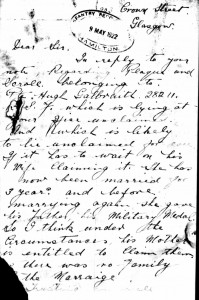 Crown Street
Glasgow.
INFANTRY RE
9 MAY 1922
HAMILTON
Dear Sir.
In reply to your
note Regarding Plaque and
Scroll belonging to
Hugh Galbraith
R.S.F. which is lying at
your office unclaimed
and which is likely
to be unclaimed for
if it has to wait on his
Wife Claiming it She has
now been married
3 years and before
marrying again she gave
his father his Military Medal
So I think under the
Circumstances his Mother
is entitled to Claim them
there was no family
the Marraige